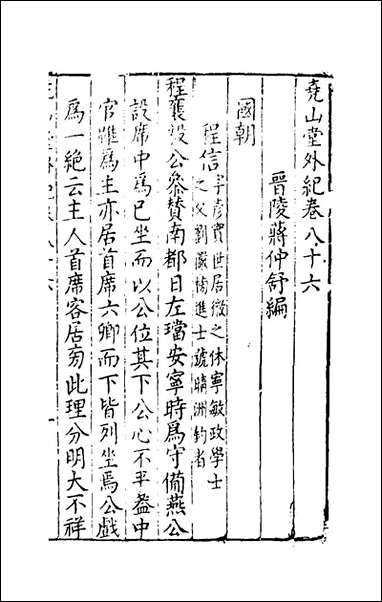 堯山堂外紀卷八十六
晉陵蔣仲舒編
國朝
程信
字彥實世居徽之休寧敏政學士
之父劉儼榜進士號晴洲釣者
程襄毅公叅贊南都日左璫安寧時爲守備燕公
設席中爲已坐而以公位其下公心不平葢中
官雖爲主亦居首席六卿而下皆列坐焉公戲
爲一絶云主人首席客居旁此理分明大不祥